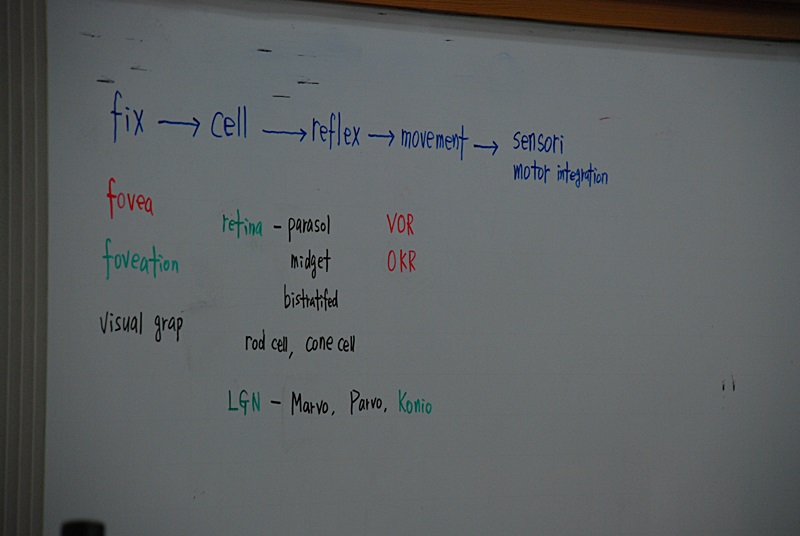 fix → cell → reflex → movement → sensori
motor integration
fovea
foveation
visual grap
retina - parasol
midget
bistratifed
rod cell, cone cell
LGN - Marvo, Parvo, Konio
VOR
OKR